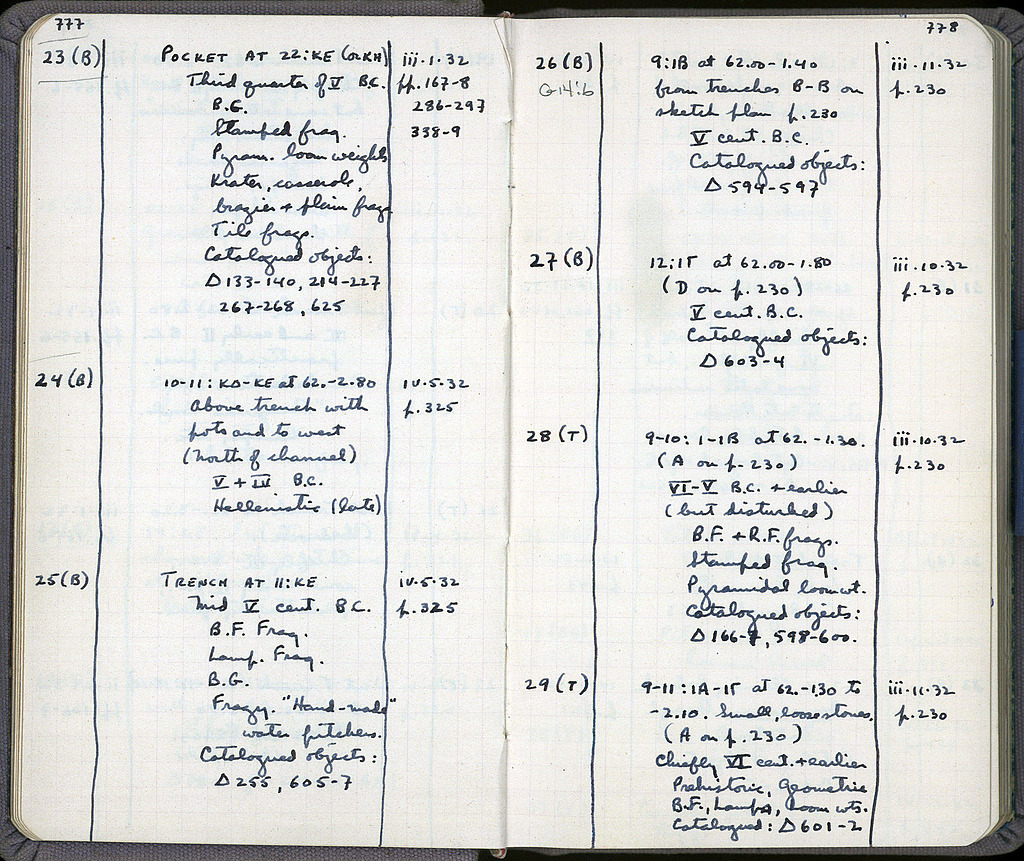 777
23 (B) POCKET AT 22:KE (OLKH) iii.1.32
Third quarter of V B.C. pp. 167-8
B.G. 286-297
Stamped frag. 338-9
Pyram. loom weights
Krater, casserole,
brazier + plain frags
Tile frags.
Catalogued objects:
Δ 133-140, 214-227
267-268, 625
24 (B) 10-11: KΔ-KE at 62.-2.80 iv.5.32
Above trench with p. 325
pots and to west
(North of channel)
V + III B.C.
Hellenistic (late)
25 (B) TRENCH AT 11:KE iv.5.32
Mid V cent. B.C. p. 325
B.F. Frag.
Lamp. Frag.
B.G.
Fragy. "Hand-made"
water pitchers.
Catalogued objects:
Δ 255, 605-7
778
26 (B) 9:IB at 62.00-1.40 iii.11.32
G 14:6 from trenches B-B on p. 230
sketch plan p. 230
V cent. B.C.
Catalogued objects:
Δ 594-597
27 (B) 12:IΓ at 62.00-1.80 iii.10.32
(D on p. 230) p. 230
V cent. B.C.
Catalogued objects:
Δ 603-4
28 (T) 9-10: I-IB at 62.-1.30. iii.10.32
(A on p. 230) p. 230
VI-V B.C. + earlier
(but disturbed)
B.F. + R.F. frags.
Stamped frag.
Pyramidal loom wt.
Catalogued objects:
Δ 166-7, 598-600.
29 (T) 9-11: IA-IΓ at 62.-1.30 to iii.11.32
-2.10. Small, loose stones. p. 230
(A on p. 230)
Chiefly VI cent. + earlier
Prehistoric, Geometric
B.F., Lamps, Loom wts.
Catalogued: Δ 601-2